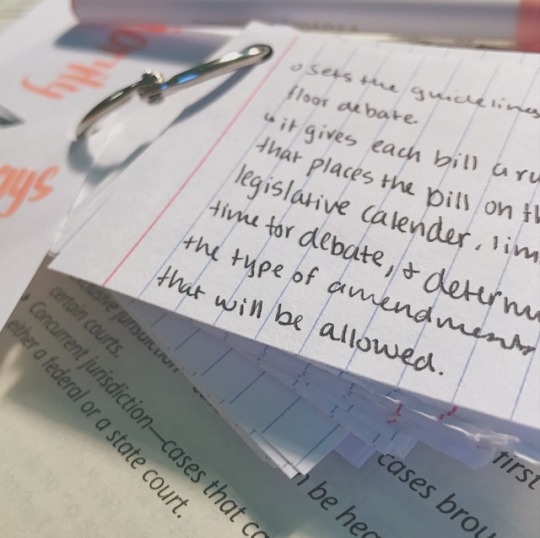 o sets the guidelines
floor debate.
↳ it gives each bill a ru
that places the bill on th
legislative calender, lim
time for debate, & determ
the type of amendments
that will be allowed.
jurisdiction
certain courts.
Concurrent jurisdiction—cases that co
either a federal or a state court.
n be hea
cases brou
first